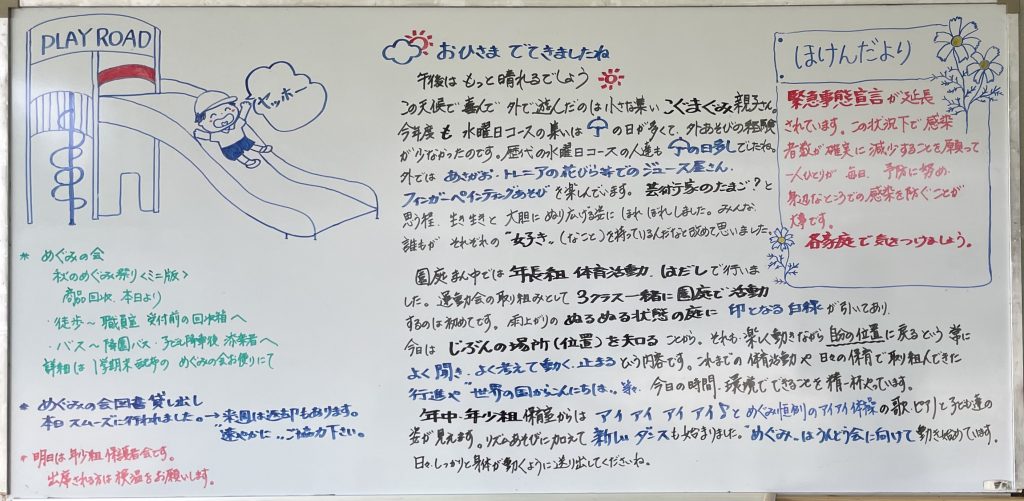 PLAY ROAD
ヤッホー
* めぐみの会
秋のめぐみ祭り<ミニ版>
商品回収、本日より
・徒歩〜職員室 受付前の回収箱へ
・バス〜降園バス・子ども降車後 添乗者へ
詳細は1学期末配布の めぐみの会お便りにて
* めぐみの会図書貸し出し
本日スムーズに行われました。→来週は返却もあります。
速やかに、ご協力下さい。
* 明日は年少組保護者会です。
出席される方は検温をお願いします。
おひさま でてきましたね
午後は もっと晴れるでしょう
この天候で 喜んで 外で遊んだのは 小さな集い こぐまぐみ親子さん。
今年度も 水曜日コースの集いは の日が多くて、外あそびの経験
が少なかったのです。歴代の水曜日コースの人達も の日多しでしたね。
外では あさがお・トレニアの花びら等でのジュース屋さん、
フィンガーペインティングあそびを楽しんでいます。芸術家のたまご?と
思う程、生き生きと 大胆に ぬり広げる姿に ほれぼれしました。みんな、
誰もが それぞれの "好き"(なこと)を持っているんだなと改めて思いました。
園庭まん中では 年長組 体育活動、はだしで行いま
した。運動会の取り組みとして 3クラス一緒に園庭で活動
するのは初めてです。雨上がりの ぬるぬる状態の庭に 印となる白線が引いてあり、
今日は じぶんの場所(位置)を知る ことから、それも 楽しい動きながら 自分の位置に戻るという 常に
よく聞き、よく考えて動く、止まる という内容です。これまでの体育活動や 日々の保育で取り組んできた
行進や "世界の国からこんにちは"等、今日の時間、環境でできることを 精一杯やっています。
年中・年少組 保育室からは アイアイ アイアイ♪と めぐみ恒例のアイアイ体操の歌、ピアノと子ども達の
姿が見えます。リズムあそびに加えて 新しいダンスも始まりました。"めぐみ"はうんどう会に向けて動き始めています。
日々、しっかりと身体が動くように送り出してくださいね。
ほけんだより
緊急事態宣言が延長
されています。この状況下で感染
者数が確実に減少することを願って
一人ひとりが 毎日、予防に努め
身近なところでの感染を防ぐことが
大事です。
各家庭で気をつけましょう。